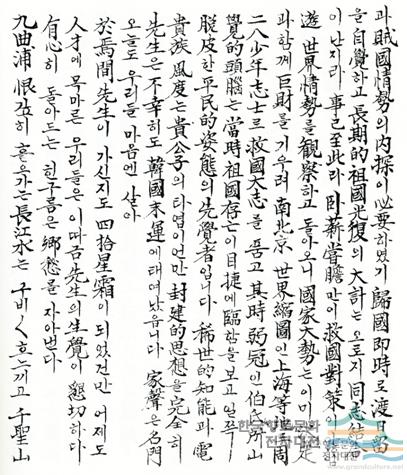 九曲浦 恨없이 흘으가는 長江水는 구비〱 흐느끼고 千聖山
有心히 돌아드는 힌구름은 鄕愁을 자아낸다
人才에 목마른 우리들은 이따금 先生의 生覺이 懇切하다
於焉間 先生이 가신지도 四拾星霜이 되었건만 어제도
오늘도 우리들 마음엔 살아
先生은 不幸히도 韓國末運에 태여났읍니다 家聲은 名門
貴族 風度는 貴公子의 타엽이언만 封建的 思想을 完全히
脫皮한 平民的 姿態의 先覺者입니다 稀世的 知能과 電
覺的 頭腦는 當時 祖國存亡이 目捷에 臨함을 보고 일찍
二八少年志士로 救國大志를 품고 其時 弱冠인 伯氏 所山
과 함께 巨財를 기우려 南北京 世界縮圖인 上海等地 周
遊 世界情勢를 観察하고 돌아오니 國家大勢는 이미 定
이 난지라 事已至此라 臥薪嘗膽만이 救國對策
을 自覺하고 長期的 祖國光復의 大計는 오로지 同志結合
과 賊國情勢의 內探이 必要하였기 歸國 即時로 渡日 留